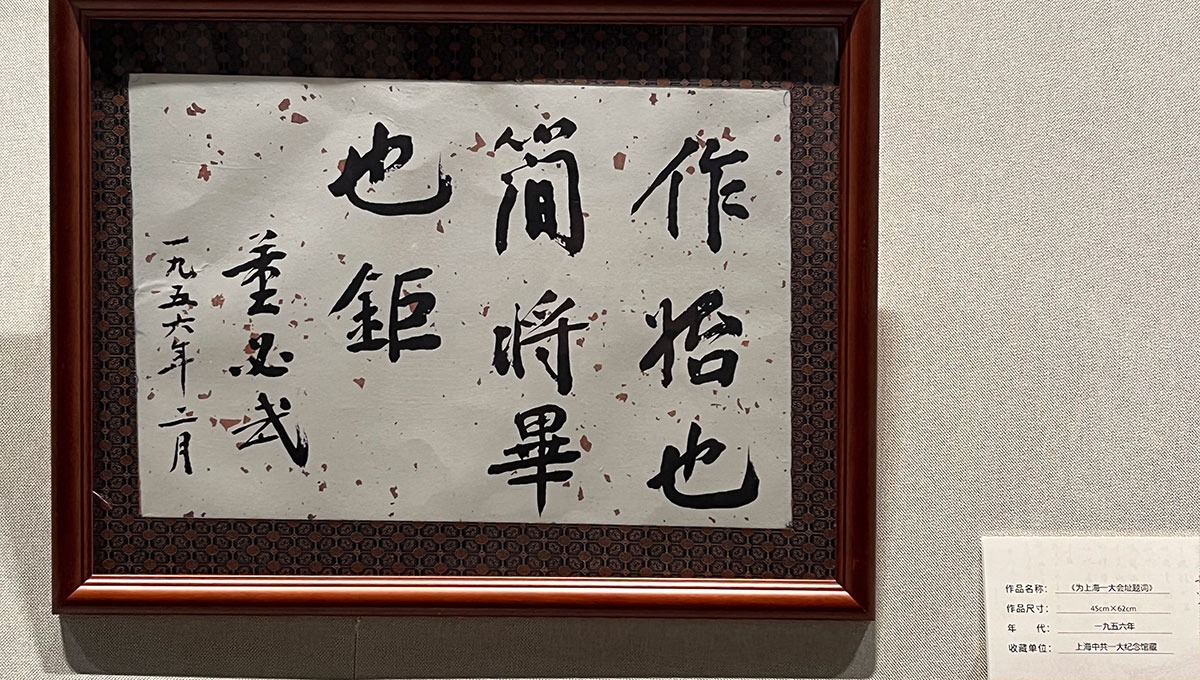 作始也
簡將畢
也鉅
董必武
一九五六年二月
作品名称：《为上海一大会址题词》
作品尺寸：45cm×62cm
年 代：一九五六年
收藏单位：上海中共一大纪念馆藏